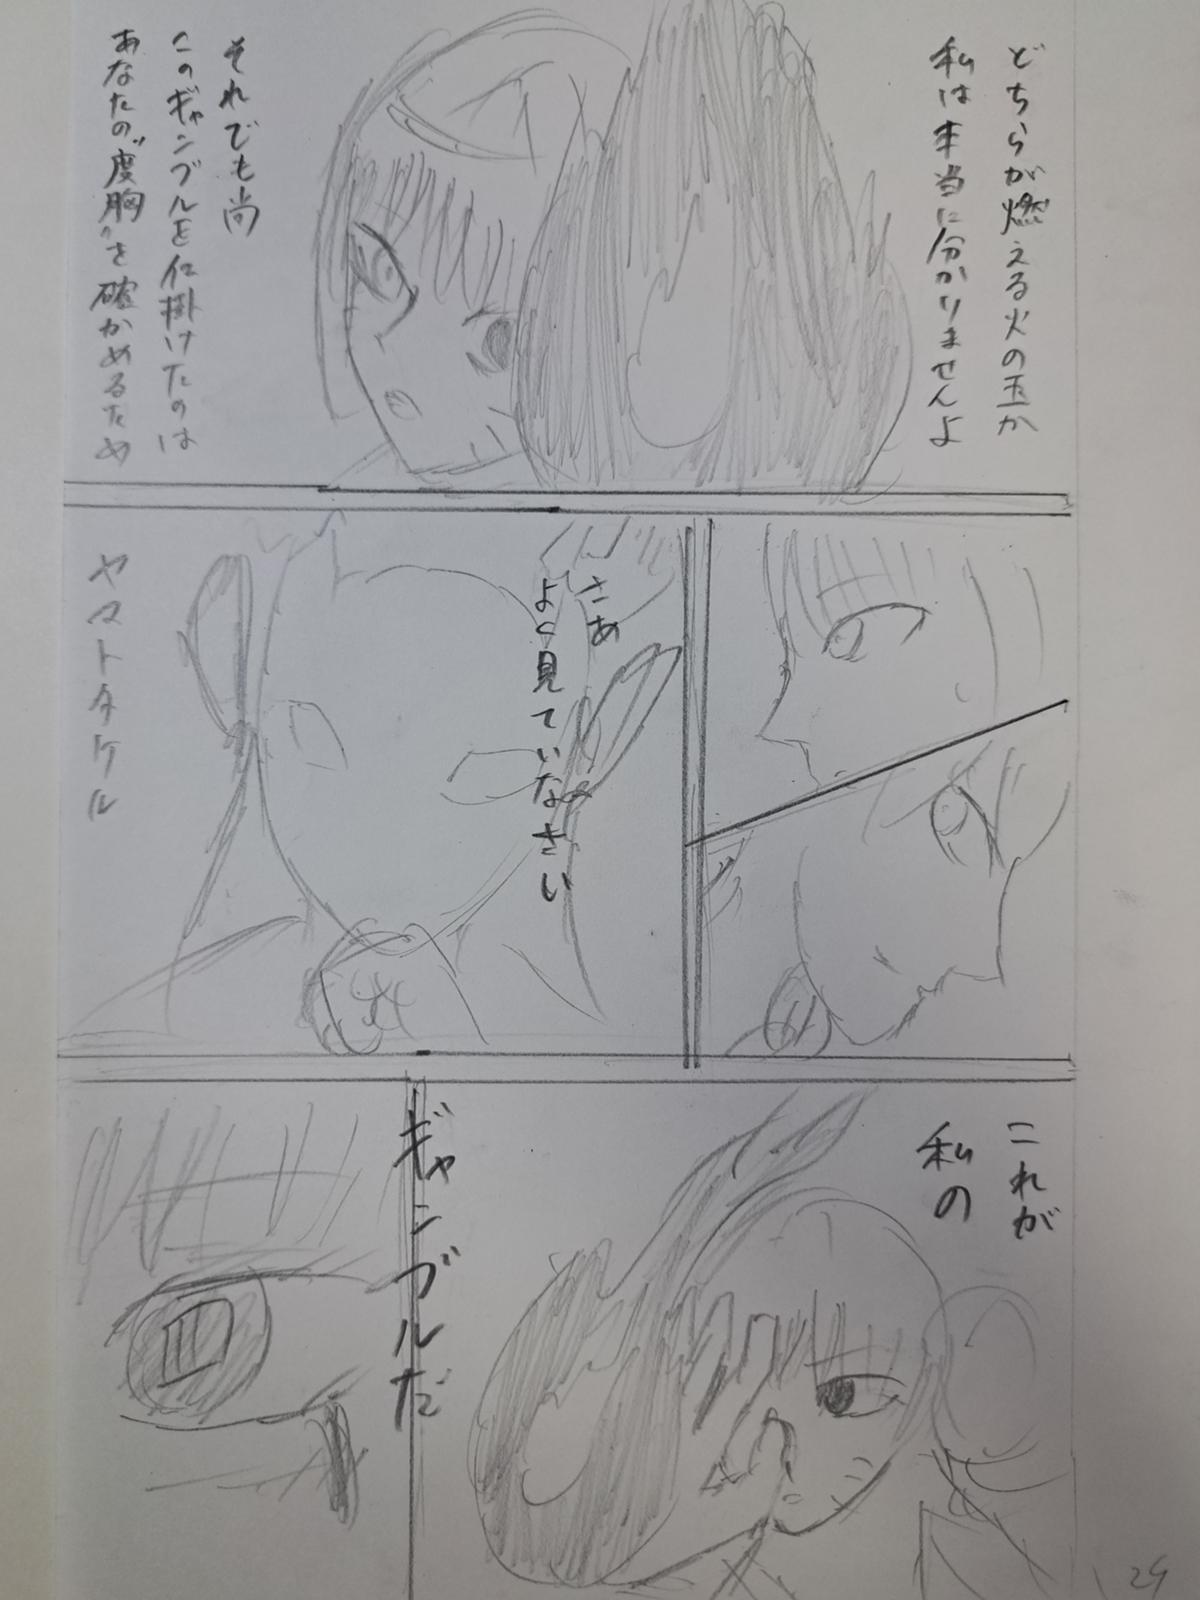 どちらが燃える火の玉か
私は本当に分かりませんよ
それでも尚
このギャンブルを仕掛けたのは
あなたの"度胸"を確かめるため
さあ
よく見ていなさい
ヤマトタケル
これが
私の
ギャンブルだ
24